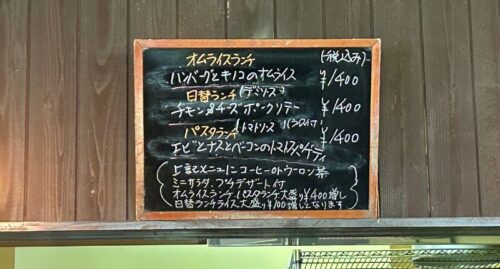 オムライスランチ (税込み)
ハンバーグとキノコのオムライス ¥1400
日替ランチ (デミソース)
チキン&チーズポークソテー ¥1400
パスタランチ (トマトソース)
エビとナスとベーコンのトマトスパゲティ ¥1400
上記メニューにコーヒーorウーロン茶
ミニサラダ、プチデザート付
オムライスランチ、パスタランチ大盛り¥400増し
日替ランチライス大盛り¥100増しとなります